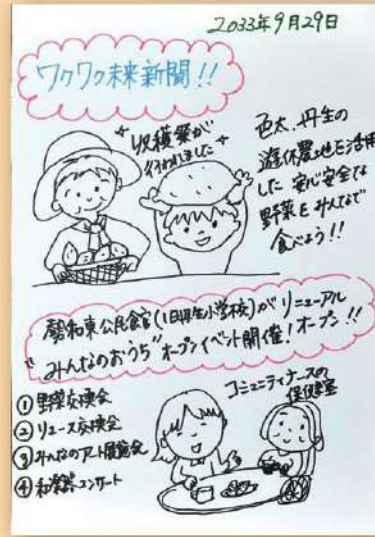 2033年9月29日
ワクワク未来新聞!!
収穫祭が
行われました
色太、丹生の
遊休農地を活用
した 安心安全な
野菜をみんなで
食べよう!!
勢和東公民館(旧丹生小学校)がリニューアル
"みんなのおうち"オープンイベント開催!オープン!!
①野菜交換会
②リユース交換会
③みんなのアート展覧会
④和楽器コンサート
コミュニティナースの
保健室